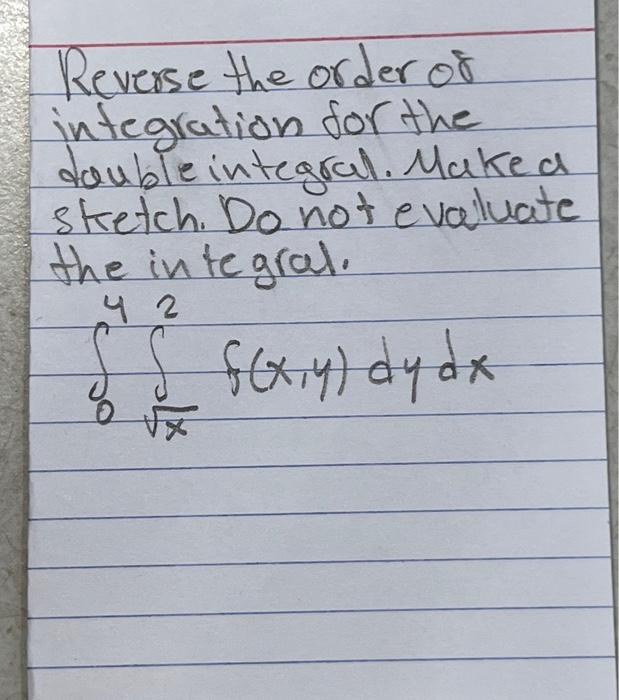 Reverse the order of
integration for the
double integral. Make a
sketch. Do not evaluate
the integral.
4 2
∫ ∫ f(x,y) dy dx
0 √x